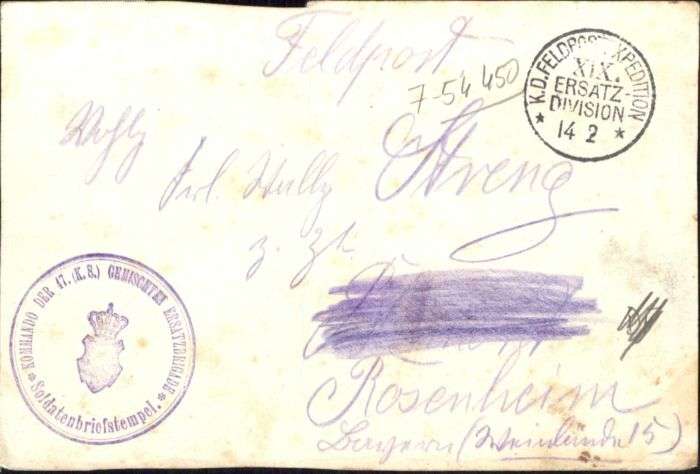 Feldpost
7-54 450
K.D. FELDPOSTEXPEDITION
XIX.
ERSATZ-
DIVISION
* 14 2 *
Frl. Wally Streng
z. Zt.
Rosenheim
Bayern (Weinlände 15)
KOMMANDO DER 47. (K. S.) GEMISCHTEN ERSATZBRIGADE
* Soldatenbriefstempel. *